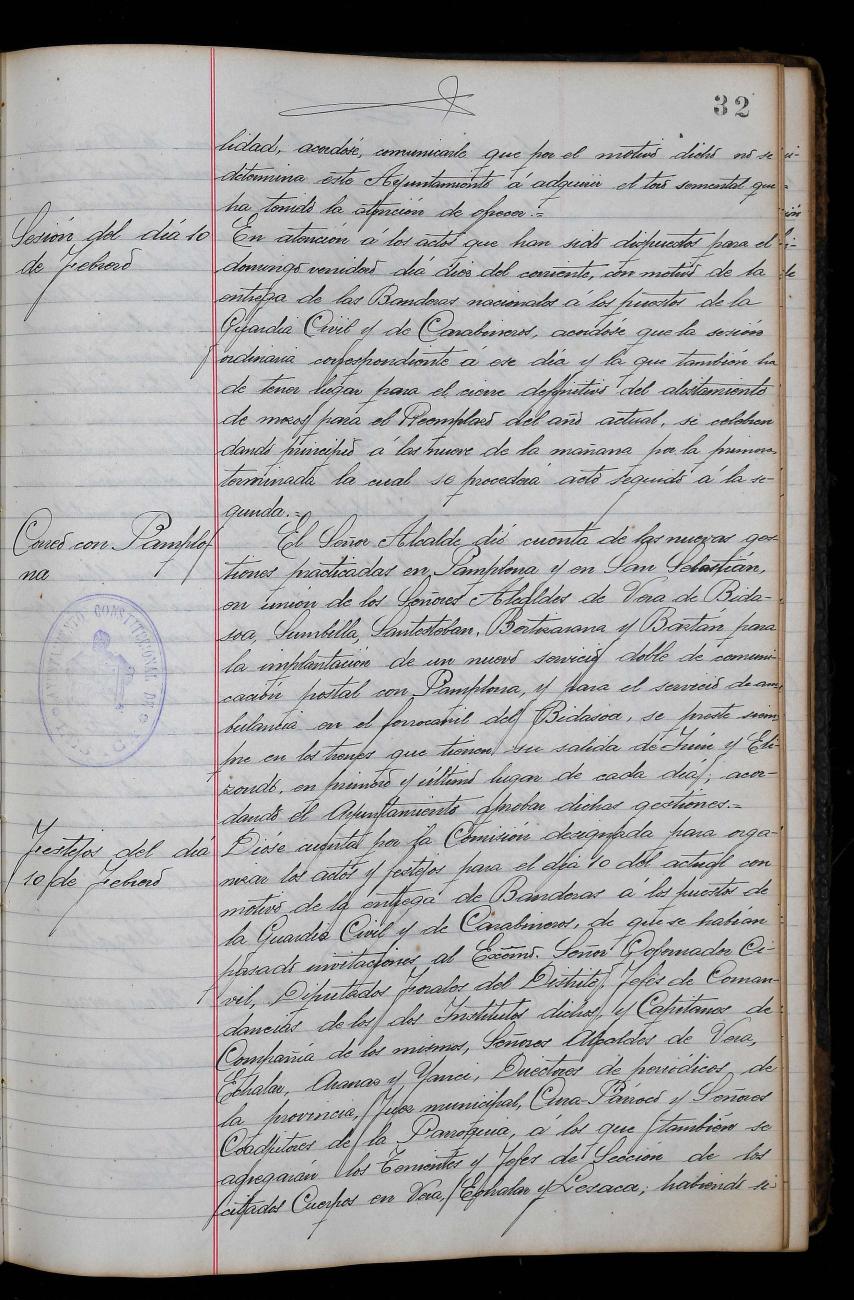 32
lidad, acordóse, comunicarle que por el motivo dicho no se
determina este Ayuntamiento á adquirir el toro semental que
ha tenido la atención de ofrecer.=
Sesión del día 10
de Febrero
En atención á los actos que han sido dispuestos para el
domingo venidero día diez del corriente, con motivo de la
entrega de las Banderas nacionales á los puestos de la
Guardia Civil y de Carabineros, acordóse que la sesión
ordinaria correspondiente a ese día y la que también ha
de tener lugar para el cierre definitivo del alistamiento
de mozos para el Reemplazo del año actual, se celebren
dando principio á las nueve de la mañana por la primera
terminada la cual se procederá acto seguido á la se-
gunda.=
Correo con Pamplo
na
El Señor Alcalde dió cuenta de las nuevas ges-
tiones practicadas en Pamplona y en San Sebastián,
en unión de los Señores Alcaldes de Vera de Bida-
soa, Sumbilla, Santesteban, Bertizarana y Baztán para
la implantación de un nuevo servicio doble de comuni-
cación postal con Pamplona, y para el servicio de am-
bulancia en el ferrocarril del Bidasoa, se preste siem
pre en los trenes que tienen su salida de Irún y Eli-
zondo, en primero y último lugar de cada día; acor-
dando el Ayuntamiento aprobar dichas gestiones.=
AYUNTAMIENTO CONSTITUCIONAL DE
Festejos del día
10 de Febrero
Dióse cuenta por la Comision designada para orga-
nizar los actos y festejos para el día 10 del actual con
motivo de la entrega de Banderas á los puestos de
la Guardia Civil y de Carabineros, de que se habían
pasado invitaciones al Excmo. Señor Gobernador Ci-
vil, Diputados Forales del Distrito, Jefes de Coman-
dancias de los dos Institutos dichos, y Capitanes de
Compañia de los mismos, Señores Alcaldes de Vera,
Echalar, Aranaz y Yanci, Directores de periódicos de
la provincia, Juez municipal, Cura-Párroco y Señores
Coadjutores de la Parroquia, á los que también se
agregarán los Tenientes y Jefes de Sección de los
citados Cuerpos en Vera, Echalar y Lesaca; habiendo si